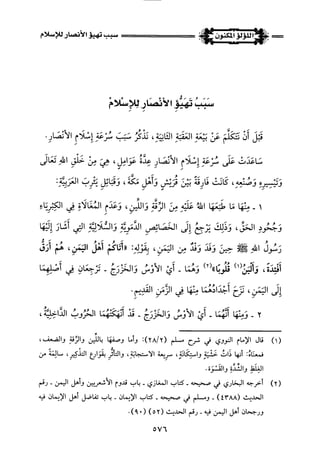 اللؤلؤ المكنون
سبب تهيؤ الأنصار للإسلام
سَبَبُ تَهَيُّؤِ الأَنْصَارِ لِلإِسْلَامِ
قَبْلَ أَنْ نَتَكَلَّمَ عَنْ بَيْعَةِ العَقَبَةِ الثَّانِيَةِ، نَذْكُرُ سَبَبَ سُرْعَةِ إِسْلَامِ الأَنْصَارِ.
سَاعَدَتْ عَلَى سُرْعَةِ إِسْلَامِ الأَنْصَارِ عِدَّةُ عَوَامِلَ، هِيَ مِنْ خَلْقِ اللهِ تَعَالَى
وَتَيْسِيرِهِ وَصُنْعِهِ، كَانَتْ فَارِقَةً بَيْنَ قُرَيْشٍ وَأَهْلِ مَكَّةَ، وَقَبَائِلِ يَثْرِبَ العَرَبِيَّةِ:
١ - مِنْهَا مَا طَبَعَهَا اللهُ عَلَيْهِ مِنَ الرِّقَّةِ وَاللِّينِ، وَعَدَمِ المُغَالَاةِ فِي الكِبْرِيَاءِ
وَجُحُودِ الحَقِّ، وَذَلِكَ يَرْجِعُ إِلَى الخَصَائِصِ الدَّمَوِيَّةِ وَالسُّلَالِيَّةِ الَّتِي أَشَارَ إِلَيْهَا
رَسُولُ اللهِ ﷺ حِينَ وَفَدَ وَفْدٌ مِنَ اليَمَنِ، بِقَوْلِهِ: «أَتَاكُمْ أَهْلُ اليَمَنِ، هُمْ أَرَقُّ
أَفْئِدَةً، وَأَلْيَنُ(١) قُلُوبًا»(٢) وَهُمَا - أَيْ الأَوْسُ وَالخَزْرَجُ - تَرْجِعَانِ فِي أَصْلِهِمَا
إِلَى اليَمَنِ، نَزَحَ أَجْدَادُهُمَا مِنْهَا فِي الزَّمَنِ القَدِيمِ.
٢ - وَمِنْهَا أَنَّهُمَا - أَيْ الأَوْسُ وَالخَزْرَجُ - قَدْ أَنْهَكَتْهُمَا الحُرُوبُ الدَّاخِلِيَّةُ،
(١) قال الإمام النووي في شرح مسلم (٢٨/٢): وأما وصفها باللين والرقة والضعف،
فمعناه: أنها ذات خشية واستكانة، سريعة الاستجابة، والتأثر بقوارع التذكير، سالمة من
الغلظ والشدة والقسوة.
(٢) أخرجه البخاري في صحيحه - كتاب المغازي - باب قدوم الأشعريين وأهل اليمن - رقم
الحديث (٤٣٨٨) - ومسلم في صحيحه - كتاب الإيمان - باب تفاضل أهل الإيمان فيه
ورجحان أهل اليمن فيه - رقم الحديث (٥٢) (٩٠).
٥٧٦